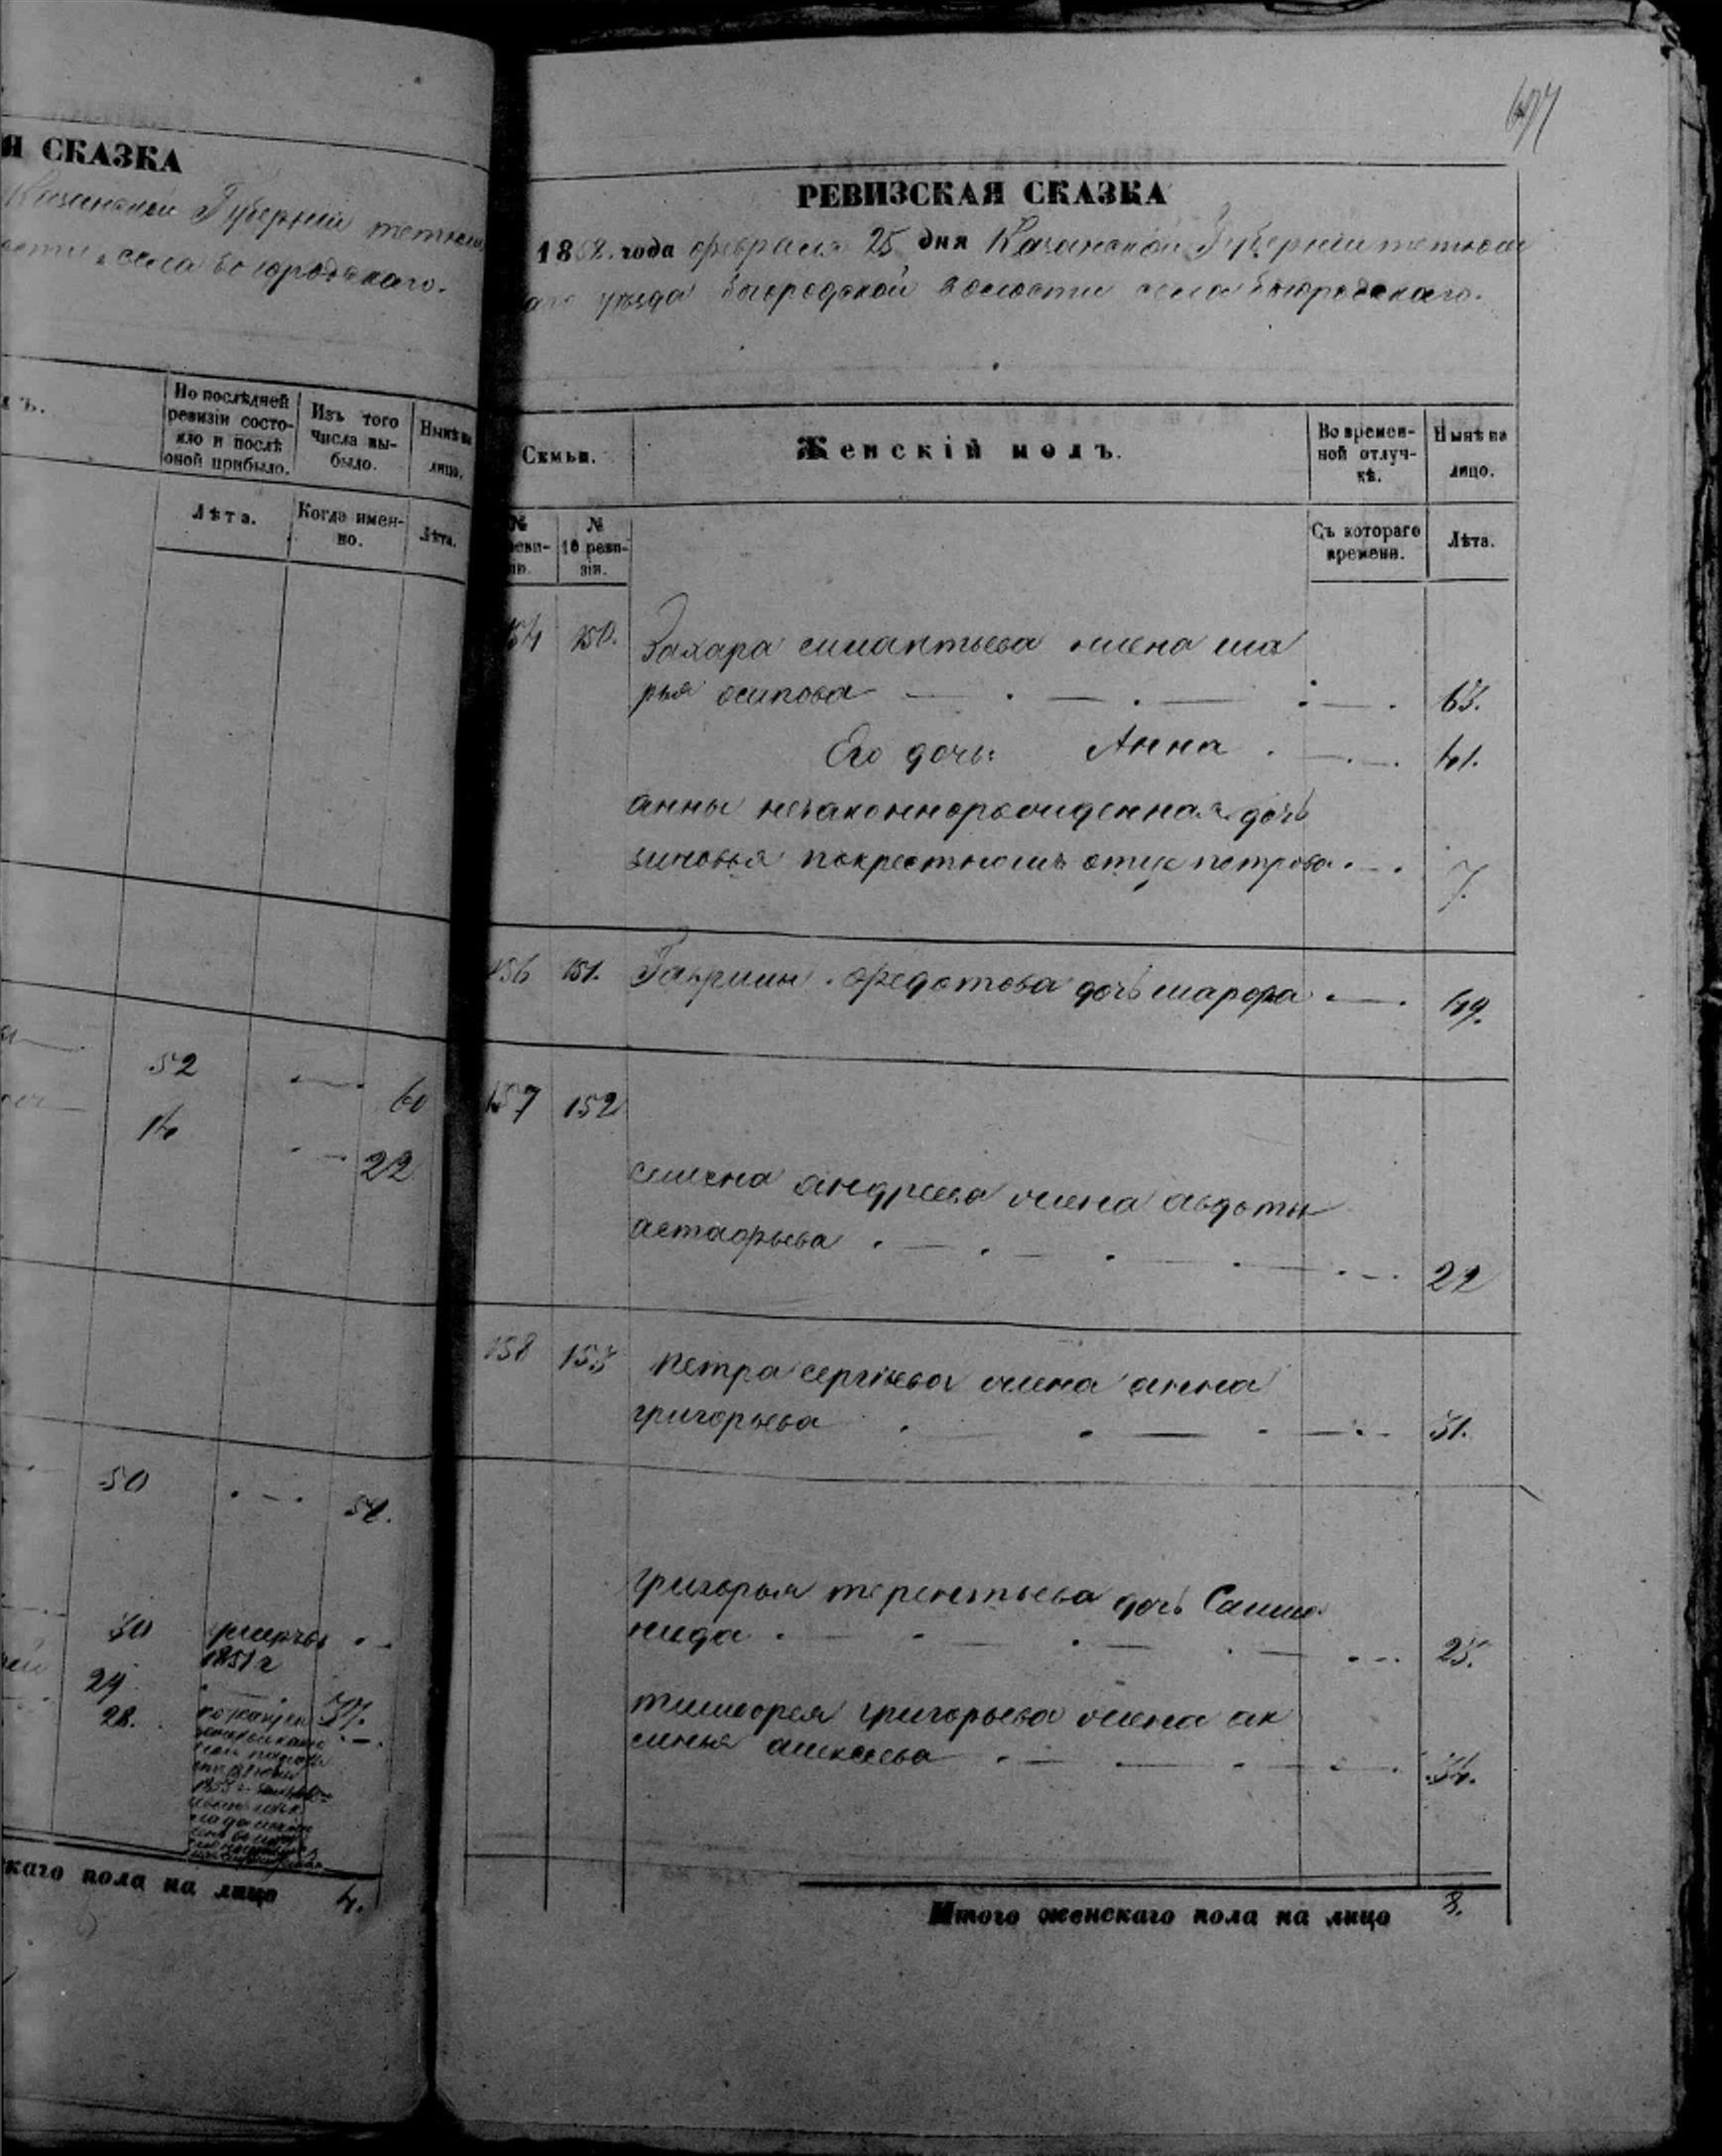 Я СКАЗКА
Казанской Губерніи тетюш
села Богородскаго.
По послѣдней ревизіи состояло и послѣ оной прибыло.
Изъ того числа выбыло.
Нынѣ на лицо.
Лѣта.
Когда именно.
Лѣта.
52
60
14
22
50
58.
30
умеръ
1851 г
29
37.
28.
каго пола на лицо 4.
РЕВИЗСКАЯ СКАЗКА
1858. года февраля 25 дня Казанской Губерніи тетюш
аго уѣзда Богородской волости села Богородскаго.
Семьи.
Женскій полъ.
Во времен-
ной отлуч-
кѣ.
Нынѣ на
лицо.
№
реви-
зіи.
№
10 реви-
зіи.
Съ котораго
времени.
Лѣта.
154 150. Захара силантьева жена ма
рья осипова 63.
Его дочь Анна 41.
анны незаконнорожденная дочь
зиновья покрестному отцу петрова 7.
156 151. Гаврилы федотова дочь марфа 49.
157 152
семена андреева жена авдотья
астафьева 22
158 153 петра сергѣева жена анна
григорьева 31.
григорья терентьева дочь Соломо
нида 25.
тимофея григорьева жена ак
синья алексеева 34.
Итого женскаго пола на лицо 8.